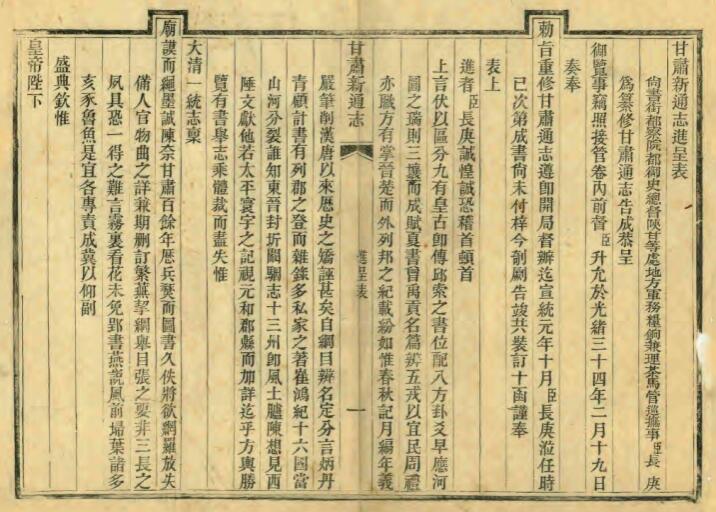 甘肅新通志進呈表
尚書銜都察院都御史總督陝甘等處地方軍務糧餉兼理茶馬管巡撫事臣長庚
爲纂修甘肅通志告成恭呈
御覽事竊照接管卷內前督臣升允於光緒三十四年二月十九日
奏奉
勅旨重修甘肅通志遵卽開局督辦迄宣統元年十月臣長庚涖任時
已次第成書尙未付梓今剞劂告竣共裝訂十函謹奉
表上
進者臣長庚誠惶誠恐稽首頓首
上言伏以區分九有皇古卽傳邱索之書位配八方卦爻早應河
圖之瑞則三壤而成賦夏書曾禹貢名篇辨五戎以宜民周禮
亦職方有掌晉楚而外列邦之紀載紛如惟春秋記月編年義
甘肅新通志
進呈表
一
嚴筆削漢唐以來歷史之矯誣甚矣自綱目辨名定分言炳丹
青顧計書有列郡之登而雜錄多私家之著崔鴻紀十六國當
山河分裂誰知東晉封圻闞駰志十三州卽風土臚陳想見西
陲文獻他若太平寰宇之記視元和郡縣而加詳迄乎方輿勝
覽有書舉志乘體裁而盡失惟
大清一統志稟
廟謨而繩墨誠陳奈甘肅百餘年歷兵燹而圖書久佚將欲網羅放失
備人官物曲之詳兼期刪訂繁蕪挈綱舉目張之要非三長之
夙具恐一得之難言霧裏看花未免郢書燕說風前埽葉諸多
亥豕魯魚是宜各專責成冀以仰副
盛典欽惟
皇帝陛下